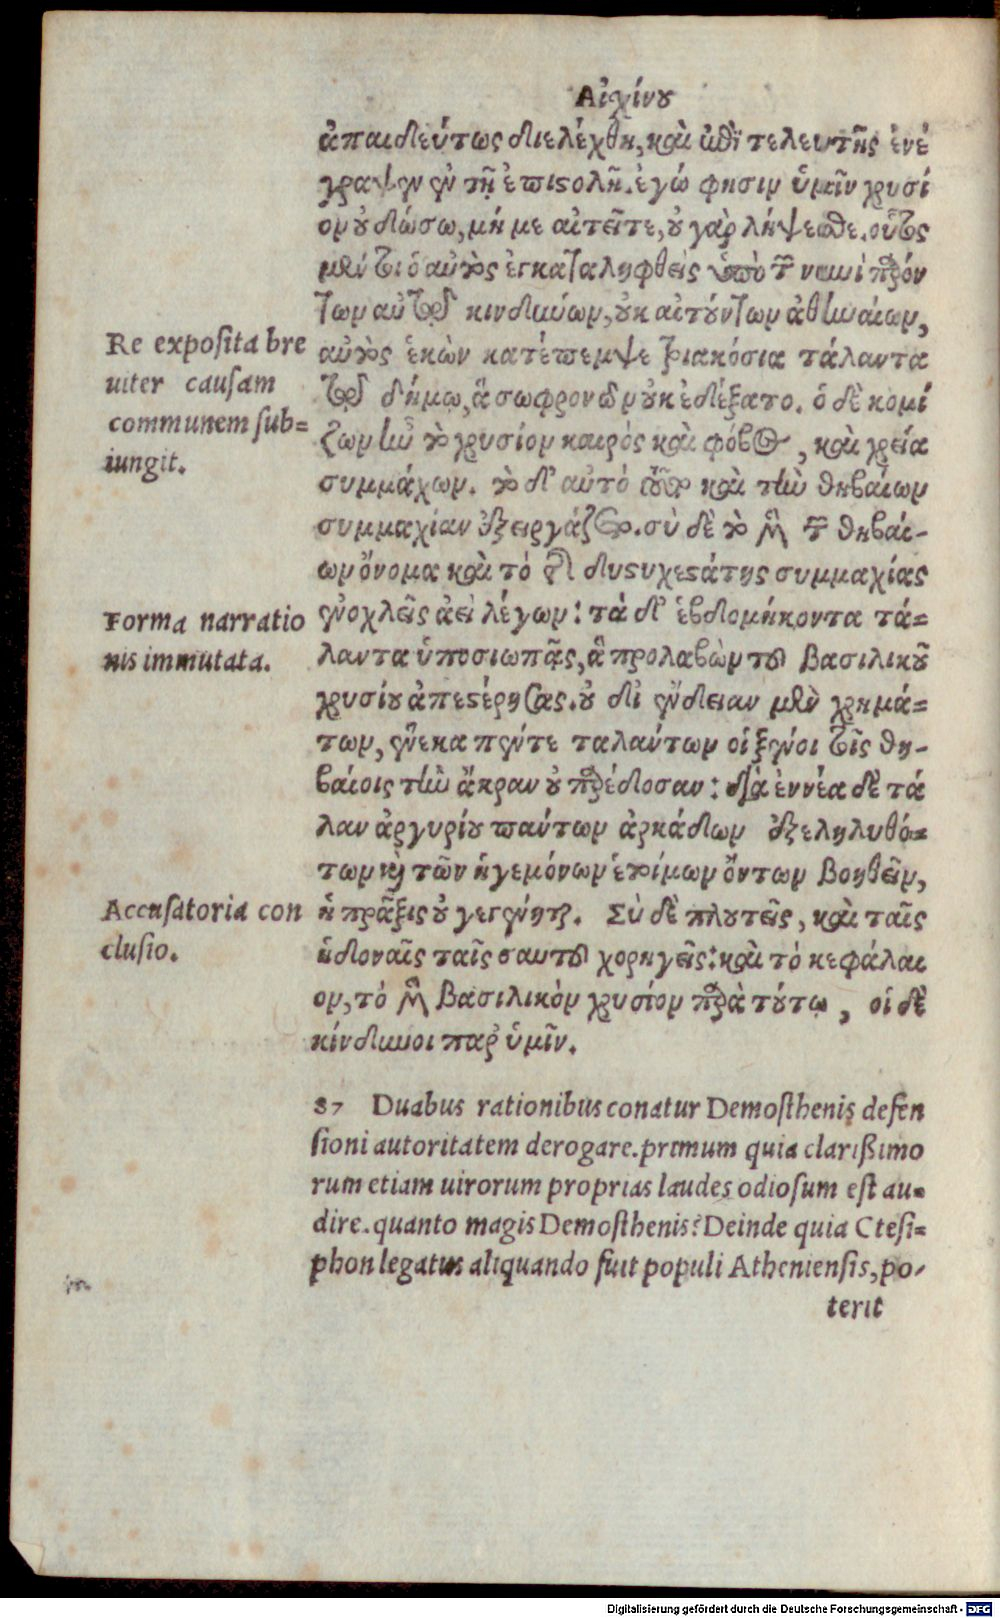 Αἰχίνου
ἀπαιδεύτως διελέχθη, καὶ ἐπὶ τελευτῆς ἐνέ
γραψεν ἐν τῇ ἐπιστολῇ. ἐγώ φησιν ὑμῖν χρυσί
ον οὐ δώσω, μή με αἰτεῖτε, οὐ γὰρ λήψεσθε. οὗτος
μέντοι ὁ αὐτὸς ἐγκαταληφθεὶς ὑπὸ τῶν νυνὶ παρόν
των αὐτῷ κινδύνων, οὐκ αἰτούντων ἀθηναίων,
αὐτὸς ἑκὼν κατέπεμψε τριακόσια τάλαντα
τῷ δήμῳ, ἃ σωφρονῶν οὐκ ἐδέξατο. ὁ δὲ κομί
ζων ἦν τὸ χρυσίον καιρός καὶ φόβος, καὶ χρεία
συμμάχων. τὸ δ' αὐτό τοῦτο καὶ τὴν θηβαίων
συμμαχίαν ἐξειργάζετο. σὺ δὲ τὸ μὲν τῶν θηβαί-
ων ὄνομα καὶ τό τῆς δυστυχεστάτης συμμαχίας
ἐνοχλεῖς ἀεὶ λέγων: τὰ δ' ἑβδομήκοντα τά=
λαντα ὑποσιωπᾷς, ἃ προλαβὼν τοῦ βασιλικοῦ
χρυσίου ἀπεστέρησας. οὐ δι' ἔνδειαν μὲν χρημά=
των, ἕνεκα πέντε ταλάντων οἱ ξένοι τοῖς θη-
βαίοις τὴν ἄκραν οὐ παρέδοσαν: διὰ ἐννέα δὲ τά
λαν ἀργυρίου πάντων ἀρκάδων ἐξεληλυθό=
των καὶ τῶν ἡγεμόνων ἑτοίμων ὄντων βοηθεῖν,
ἡ πρᾶξις οὐ γεγένηται. Σὺ δὲ πλουτεῖς, καὶ ταῖς
ἡδοναῖς ταῖς σαυτοῦ χορηγεῖς: καὶ τὸ κεφάλαι
ον, τό μὲν βασιλικὸν χρυσίον παρὰ τούτῳ, οἱ δὲ
κίνδυνοι παρ' ὑμῖν.
Re exposita bre
uiter causam
communem sub=
iungit.
Forma narratio
nis immutata.
Accusatoria con
clusio.
87 Duabus rationibus conatur Demosthenis defen
sioni autoritatem derogare. primum quia clarißimo
rum etiam uirorum proprias laudes odiosum est au=
dire. quanto magis Demosthenis? Deinde quia Ctesi=
phon legatus aliquando fuit populi Atheniensis, po-
terit
Digitalisierung gefördert durch die Deutsche Forschungsgemeinschaft - DFG